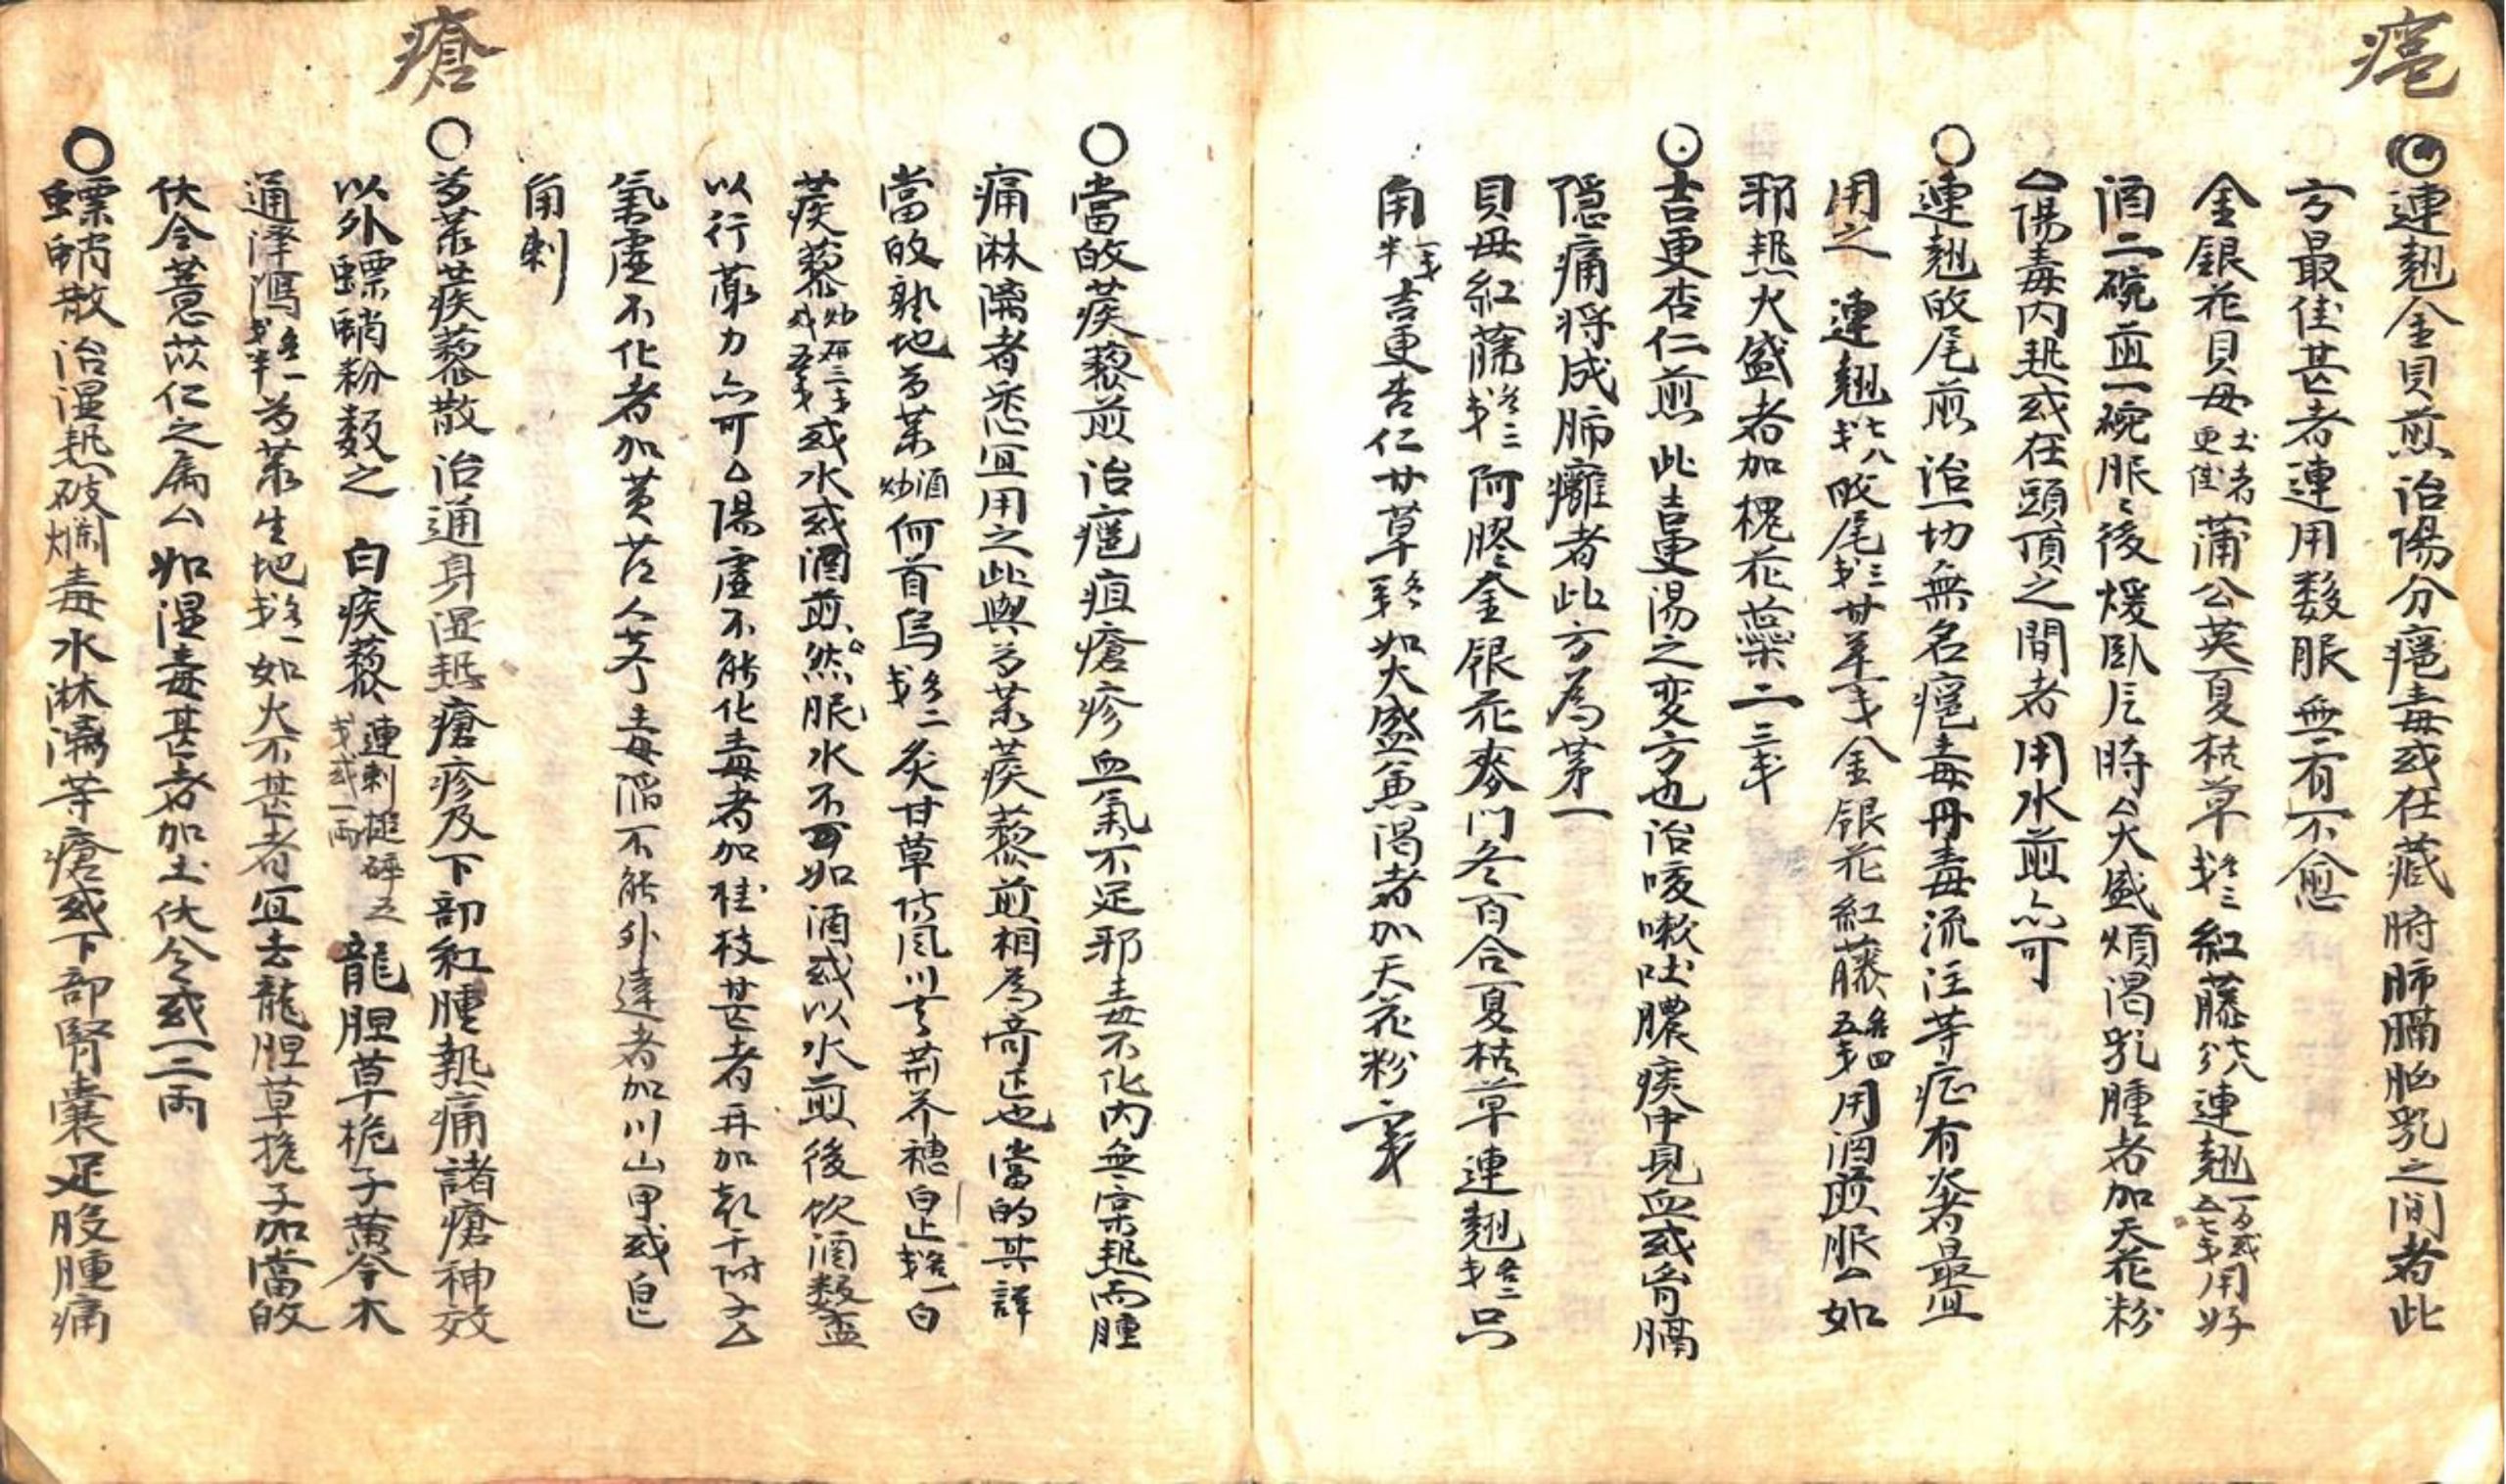 癰
連翹金貝煎治陽分癰毒或在藏腑肺膈胸乳之間者此
方最佳甚者連用数服無有不愈
金銀花貝母土者更佳蒲公英夏枯草戔各三紅藤分七八連翹一両或五七戔用好
酒二碗煎一碗服〻後煖臥片時△火盛煩渴乳腫者加天花粉
△陽毒内热或在頭頂之間者用水煎亦可
連翹㱔尾煎治一切無名癰毒丹毒流注等症有火者最宜
用之 連翹七八戔㱔尾三戔甘草一戔金銀花紅藤各四五戔用酒煎服△如
邪热火盛者加槐花蕊二三戔
吉更杏仁煎此吉更湯之变方也治咳嗽吐膿痰中見血或胷膈
隱痛将成肺癰者此方為茅一
貝母紅藤戔各三阿膠金銀花麥门冬百合夏枯草連翹戔各二只
角一戔半吉更杏仁甘草各一戔如火盛兼渴者加天花粉二戔
當㱔蒺藜煎治癰疽瘡疹血氣不足邪毒不化内無寔热而腫
痛淋漓者悉宜用之此與芍藥蒺藜煎相為奇正也當的其詳
當㱔熟地芍藥酒炒何首烏戔各二炙甘草防風川芎荊芥穗白芷戔各一白
蒺藜炒研三戔或五戔或水或酒煎然服水不可如酒或以水煎後飲酒数盃
以行藥力亦可△陽虛不能化毒者加桂枝甚者再加乾干附子△
氣虛不化者加黃芪人参毒滔不能外達者加川山甲或皀
角刺
瘡
芍藥蒺藜散治通身湿热瘡疹及下部紅腫熱痛諸瘡神效
以外螵蛸粉数之 白疾藜連刺搥碎五戔或一両龍胆草梔子黃今木
通澤瀉各一戔半芍藥生地戔各一如火不甚者宜去龍胆草梔子加當㱔
伏令薏苡仁之属△如湿毒甚者加土伏令或一二両
螵蛸散治湿热破爛毒水淋漓等瘡或下部腎囊足股腫痛